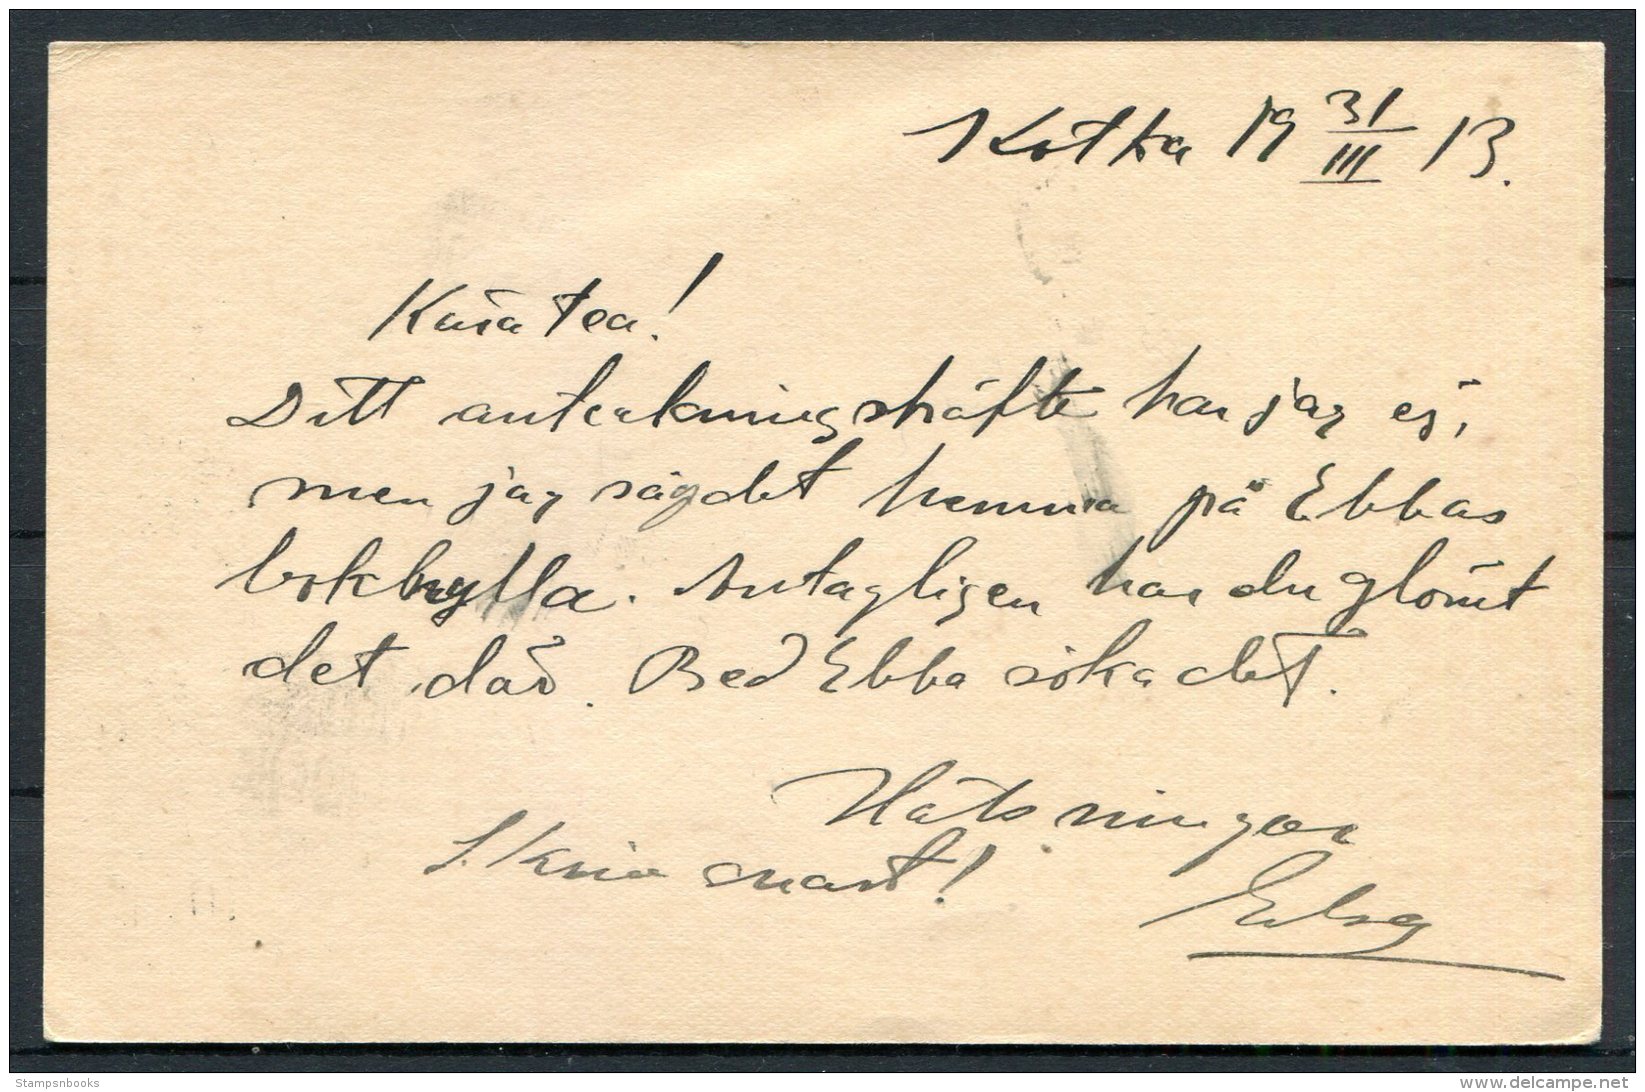 Kotka 19 31/III 13.
Kära Tea!
Ditt anteckningshäfte har jag ej,
men jag såg det hemma på Ebbas
bokhylla. Antagligen har du glömt
det där. Bed Ebba söka det.
Hälsningar
Skriv snart!
Stampsnbooks
delcampe.net